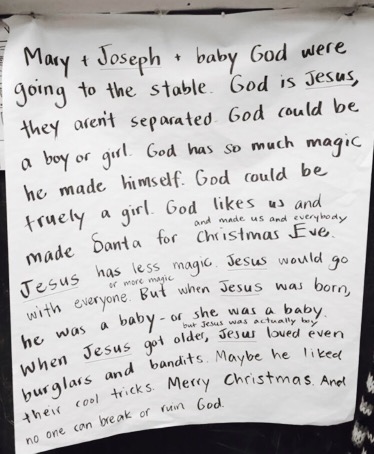 Mary + Joseph + baby God were
going to the stable. God is Jesus,
they aren't separated. God could be
a boy or girl. God has so much magic
he made himself. God could be
truely a girl. God likes us and
and made us and everybody
made Santa for Christmas Eve.
Jesus has less magic. Jesus would go
or more magic
with everyone. But when Jesus was born,
he was a baby - or she was a baby.
but Jesus was actually boy
When Jesus got older, Jesus loved even
burglars and bandits. Maybe he liked
their cool tricks. Merry Christmas. And
no one can break or ruin God.